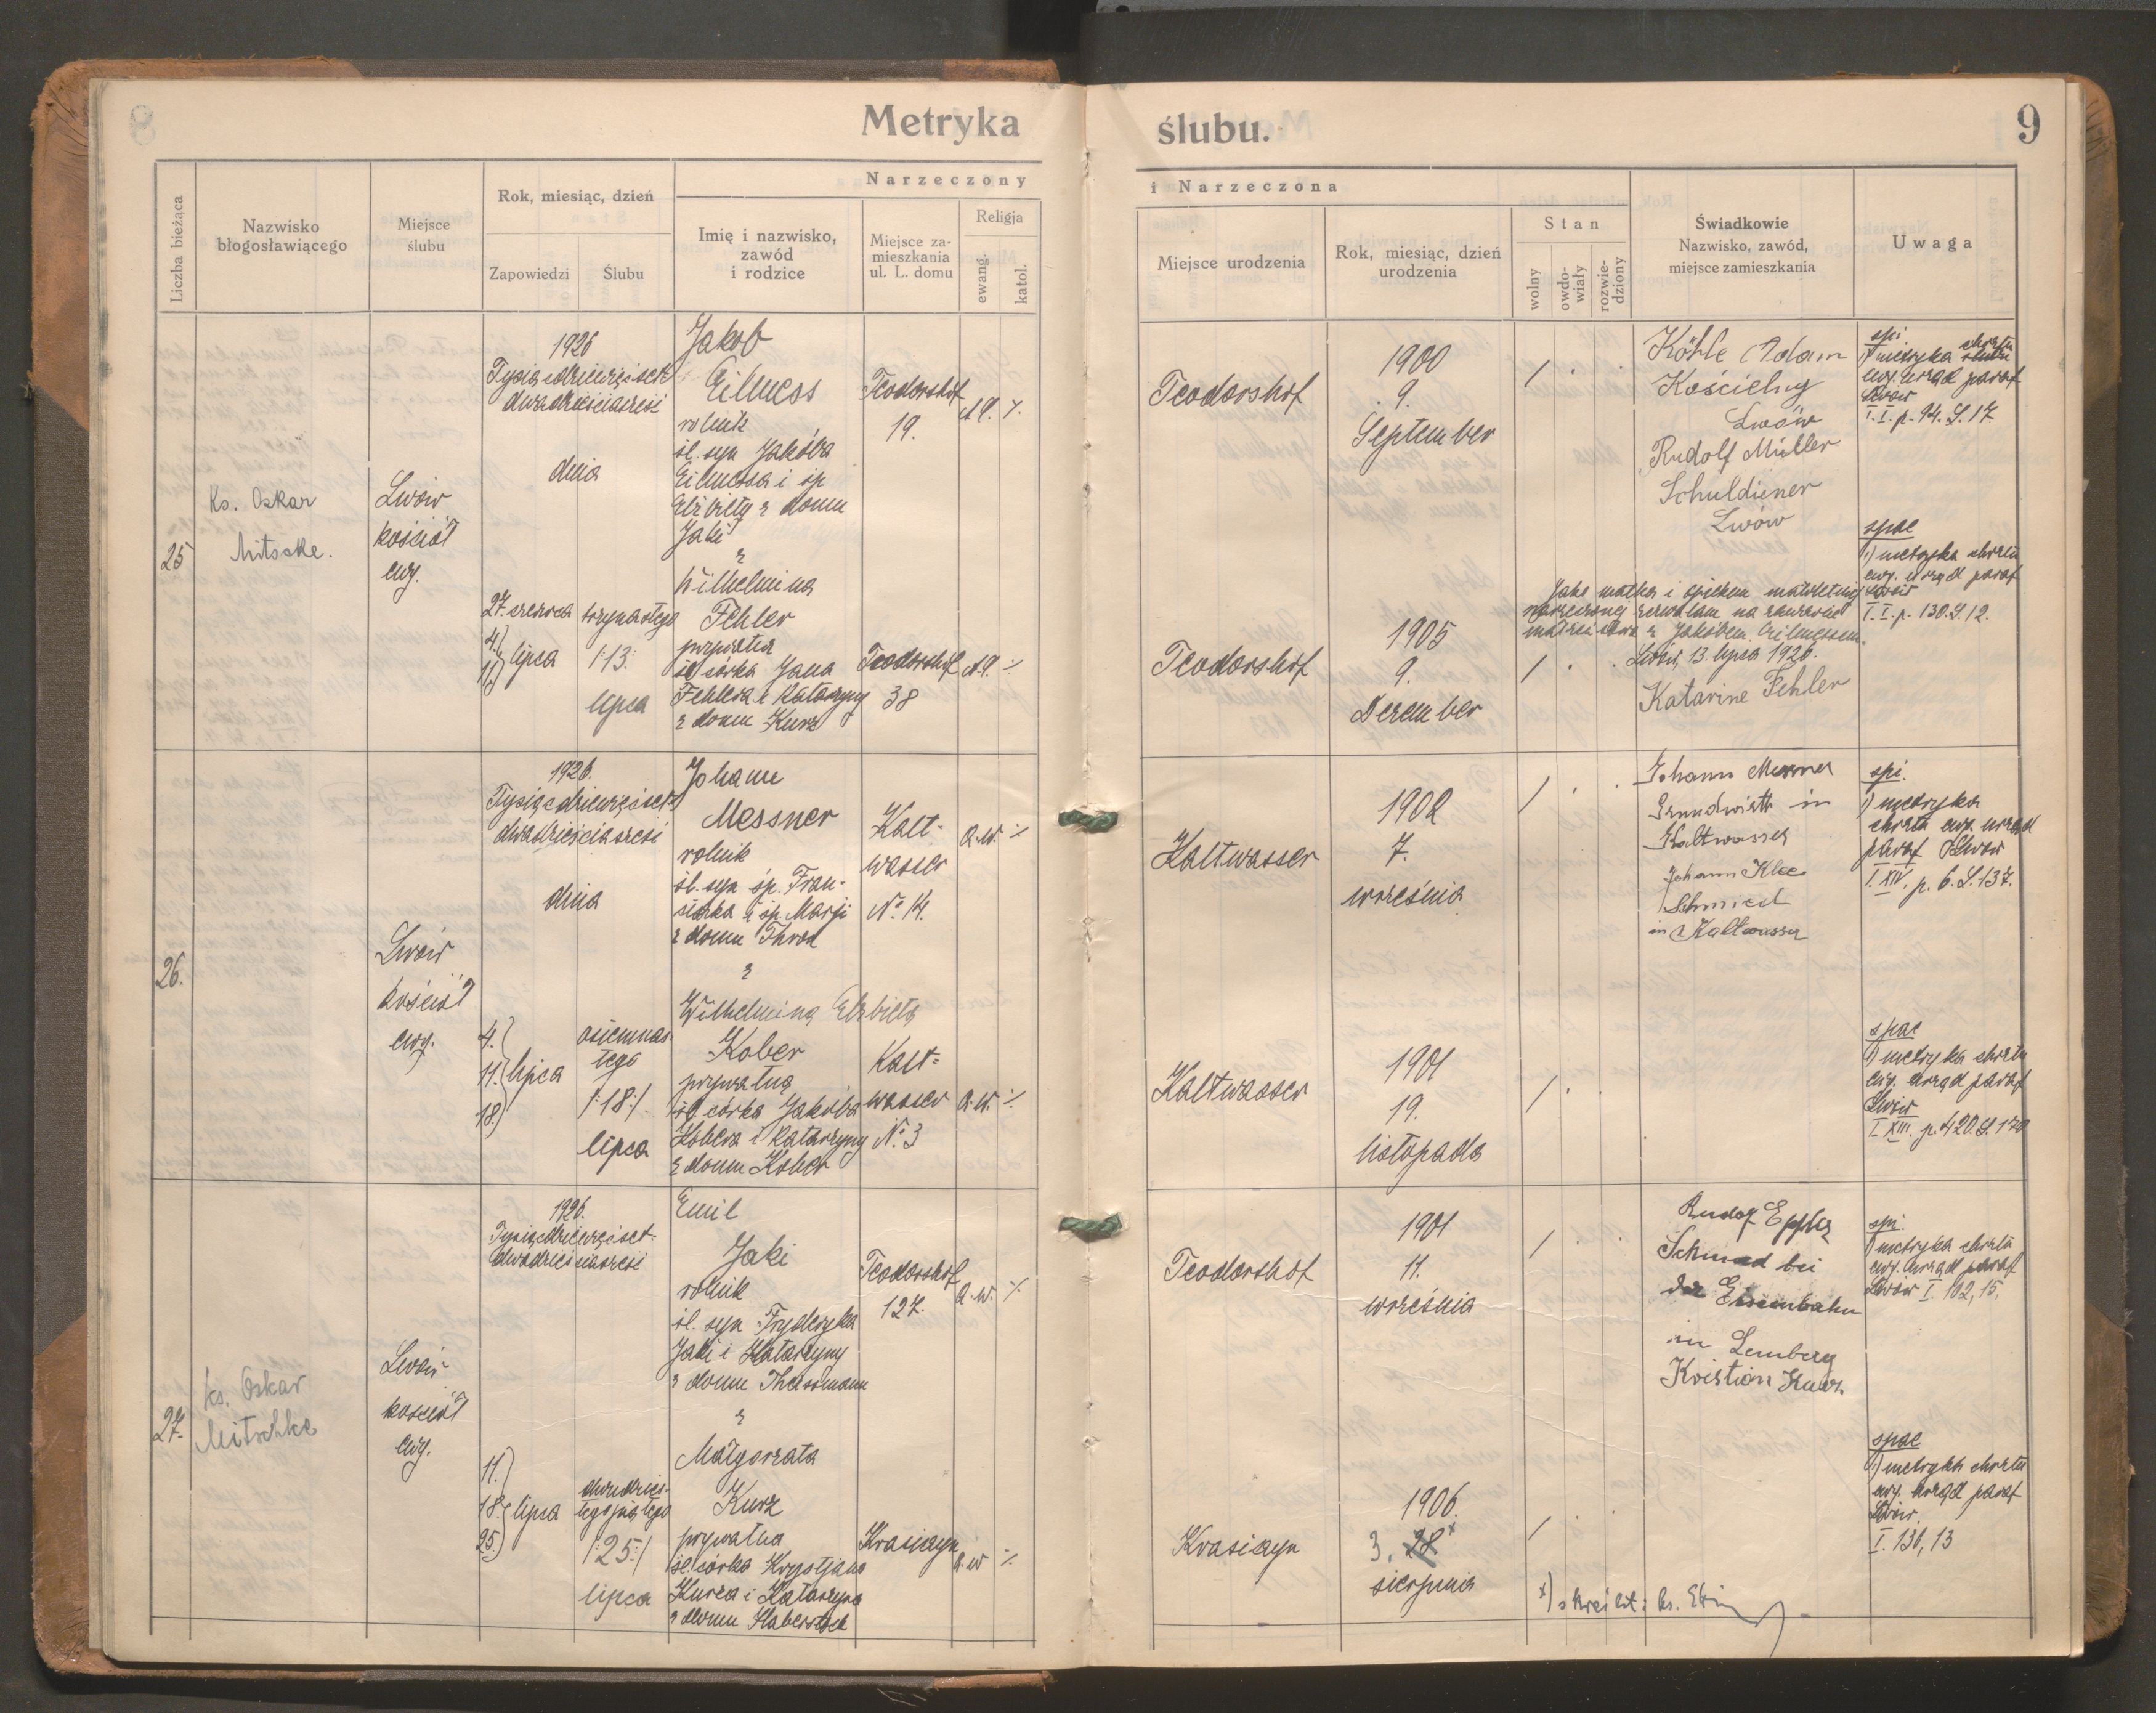 Metryka ślubu. 9
Liczba bieżąca
Nazwisko
błogosławiącego
Miejsce
ślubu
Rok, miesiąc, dzień
Zapowiedzi
Ślubu
Narzeczony
Imię i nazwisko,
zawód
i rodzice
Miejsce za-
mieszkania
ul. L. domu
Religja
ewang.
katol.
i Narzeczona
Miejsce urodzenia
Rok, miesiąc, dzień
urodzenia
Stan
wolny
owdo-
wiały
rozwie-
dziony
Świadkowie
Nazwisko, zawód,
miejsce zamieszkania
Uwaga
25
Ks. Oskar
Mitschke.
Lwów
kościół
ewg.
1926
Tysiącdziewięćset
dwadzieściasześć
dnia
27. czerwca
4.
11.
lipca
trzynastego
/:13:
lipca
Jakob
Eilmess
rolnik
śl. syn Jakóba
Eilmessa i śp
Elżbiety z domu
Jaki
z
Wilhelmina
Fehler
prywatna
śl córka Jana
Fehlera i Katarzyny
z domu Kurz
Teodorshof
19.
Teodorshof
38
Teodorshof
1900
9.
September
/ . .
Teodorshof
1905
9.
Dezember
/ . .
Köhle Adam
Kościelny
Lwów
Rudolf Müller
Schuldiener
Lwów
Jako matka i opiekun małoletniej
narzeczonej zezwalam na zawarcie
małżeństwa z Jakóbem Eilmessem.
Lwów, 13. lipca 1926.
Katarine Fehler
spi
1) metryka chrztu
ewg. urząd paraf
Lwów
T. I. p. 94. L. 17
spae
1) metryka chrztu
ewg. urząd paraf
Lwów
T. I. p. 130. L. 12.
26.
Lwów
kościół
ewg.
1926.
Tysiącdziewięćset
dwadzieściasześć
dnia
4.
11.
18.
lipca
osiemnas-
tego
/:18:/
lipca
Johann
Messner
rolnik
śl. syn śp. Fran-
ciszka i śp. Marji
z domu
z
Wilhelmina Elżbieta
Kober
prywatna
śl. córka Jakóba
Kobera i Katarzyny
z domu Kober
Kalt-
wasser
No. 14.
a.w.
Kalt-
wasser
No. 3
a.w.
Kaltwasser
1902
7.
września
/ . .
Kaltwasser
1901
19.
listopada
/ .
Johann Messner
Grundwirth in
Kaltwasser
Johann Klee
Schmied
in Kaltwasser
spi.
1) metryka
chrztu ewg. urząd
paraf Lwów
T. XIV. p. 6. L. 137.
spae
1) metryka chrztu
ewg. urząd paraf
Lwów
T. XIII. p. 420. L. 170
27.
ks. Oskar
Mitschke
Lwów
kościół
ewg.
1926.
Tysiącdziewięćset
dwadzieściasześć
11.
18.
25.
lipca
dwudzies-
tegopiątego
/:25:/
lipca
Emil
Jaki
rolnik
śl. syn Fryderyka
Jaki i Katarzyny
z domu
z
Małgorzata
Kurz
prywatna
śl. córka Krystjana
Kurza i Katarzyna
z domu Haberstock
Teodorshof
127.
a.w.
Krasiczyn
a.w
Teodorshof
1901
11.
września
/ . .
Krasiczyn
1906.
3. 28 x
sierpnia
/ .
Rudolf Eppler
Schmied bei
der Eisenbahn
in Lemberg
Kristian Kurz
x) skreślił: ks.
spi.
1) metryka chrztu
ewg. urząd paraf
Lwów I. 102, 15.
spae
1) metryka chrztu
ewg. urząd paraf
Lwów.
I. 130, 13